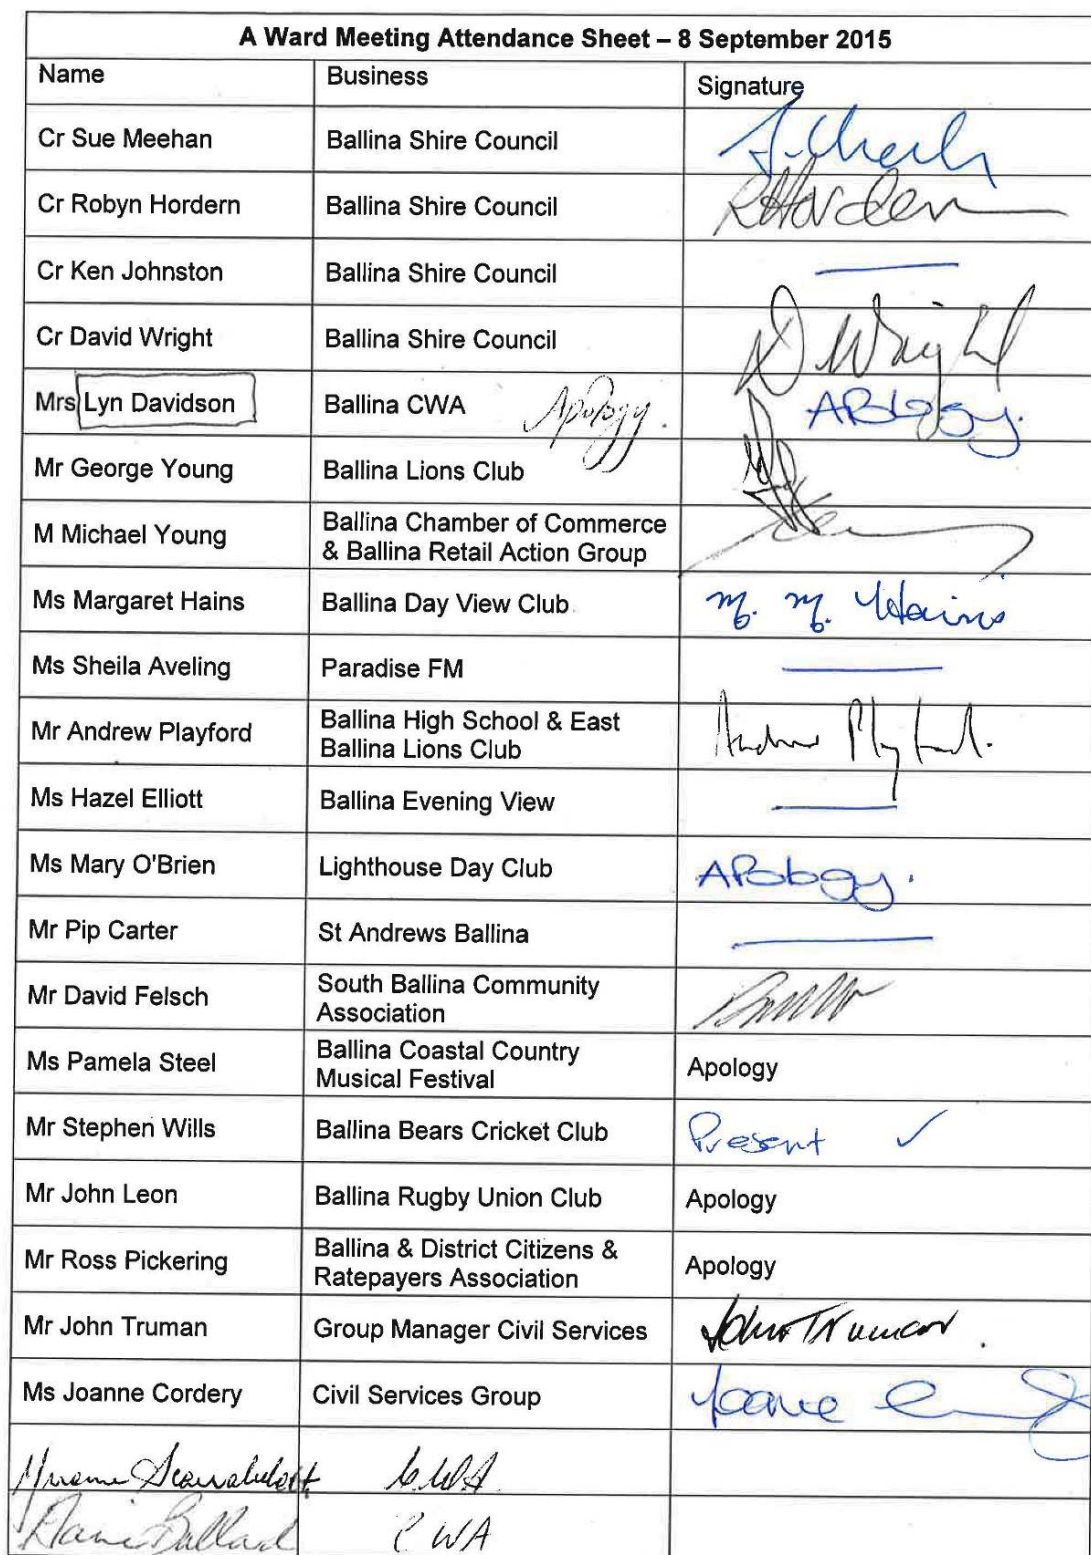 A Ward Meeting Attendance Sheet – 8 September 2015
Name Business Signature
Cr Sue Meehan Ballina Shire Council
Cr Robyn Hordern Ballina Shire Council RHordern
Cr Ken Johnston Ballina Shire Council
Cr David Wright Ballina Shire Council D Wright
Mrs Lyn Davidson Ballina CWA Apology. APology.
Mr George Young Ballina Lions Club
M Michael Young Ballina Chamber of Commerce
& Ballina Retail Action Group
Ms Margaret Hains Ballina Day View Club M. M. Hains
Ms Sheila Aveling Paradise FM
Mr Andrew Playford Ballina High School & East
Ballina Lions Club Andrew Playford.
Ms Hazel Elliott Ballina Evening View
Ms Mary O'Brien Lighthouse Day Club APology.
Mr Pip Carter St Andrews Ballina
Mr David Felsch South Ballina Community
Association
Ms Pamela Steel Ballina Coastal Country
Musical Festival Apology
Mr Stephen Wills Ballina Bears Cricket Club Present ✓
Mr John Leon Ballina Rugby Union Club Apology
Mr Ross Pickering Ballina & District Citizens &
Ratepayers Association Apology
Mr John Truman Group Manager Civil Services John Truman.
Ms Joanne Cordery Civil Services Group Joanne
C.W.A
Ballard CWA